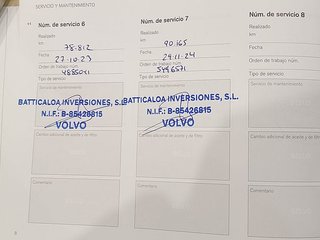 SERVICIO Y MANTENIMIENTO
Núm. de servicio 6
Realizado
km
78.812
Fecha
27-10-23
Orden de trabajo núm.
Tipo de servicio
Servicio de mantenimiento
BATTICALOA INVERSIONES, S.L.
N.I.F.: B-85426815
VOLVO
Cambio adicional de aceite y de filtro
Comentario
Núm. de servicio 7
Realizado
km
90.165
Fecha
29-11-24
Orden de trabajo núm.
5496571
Tipo de servicio
Servicio de mantenimiento
BATTICALOA INVERSIONES, S.L.
N.I.F.: B-85426815
VOLVO
Cambio adicional de aceite y de filtro
Comentario
Núm. de servicio 8
Realizado
km
Fecha
Orden de trabajo núm.
Tipo de servicio
Servicio de mantenimiento
Cambio adicional de aceite y de filtro
Comentario
8